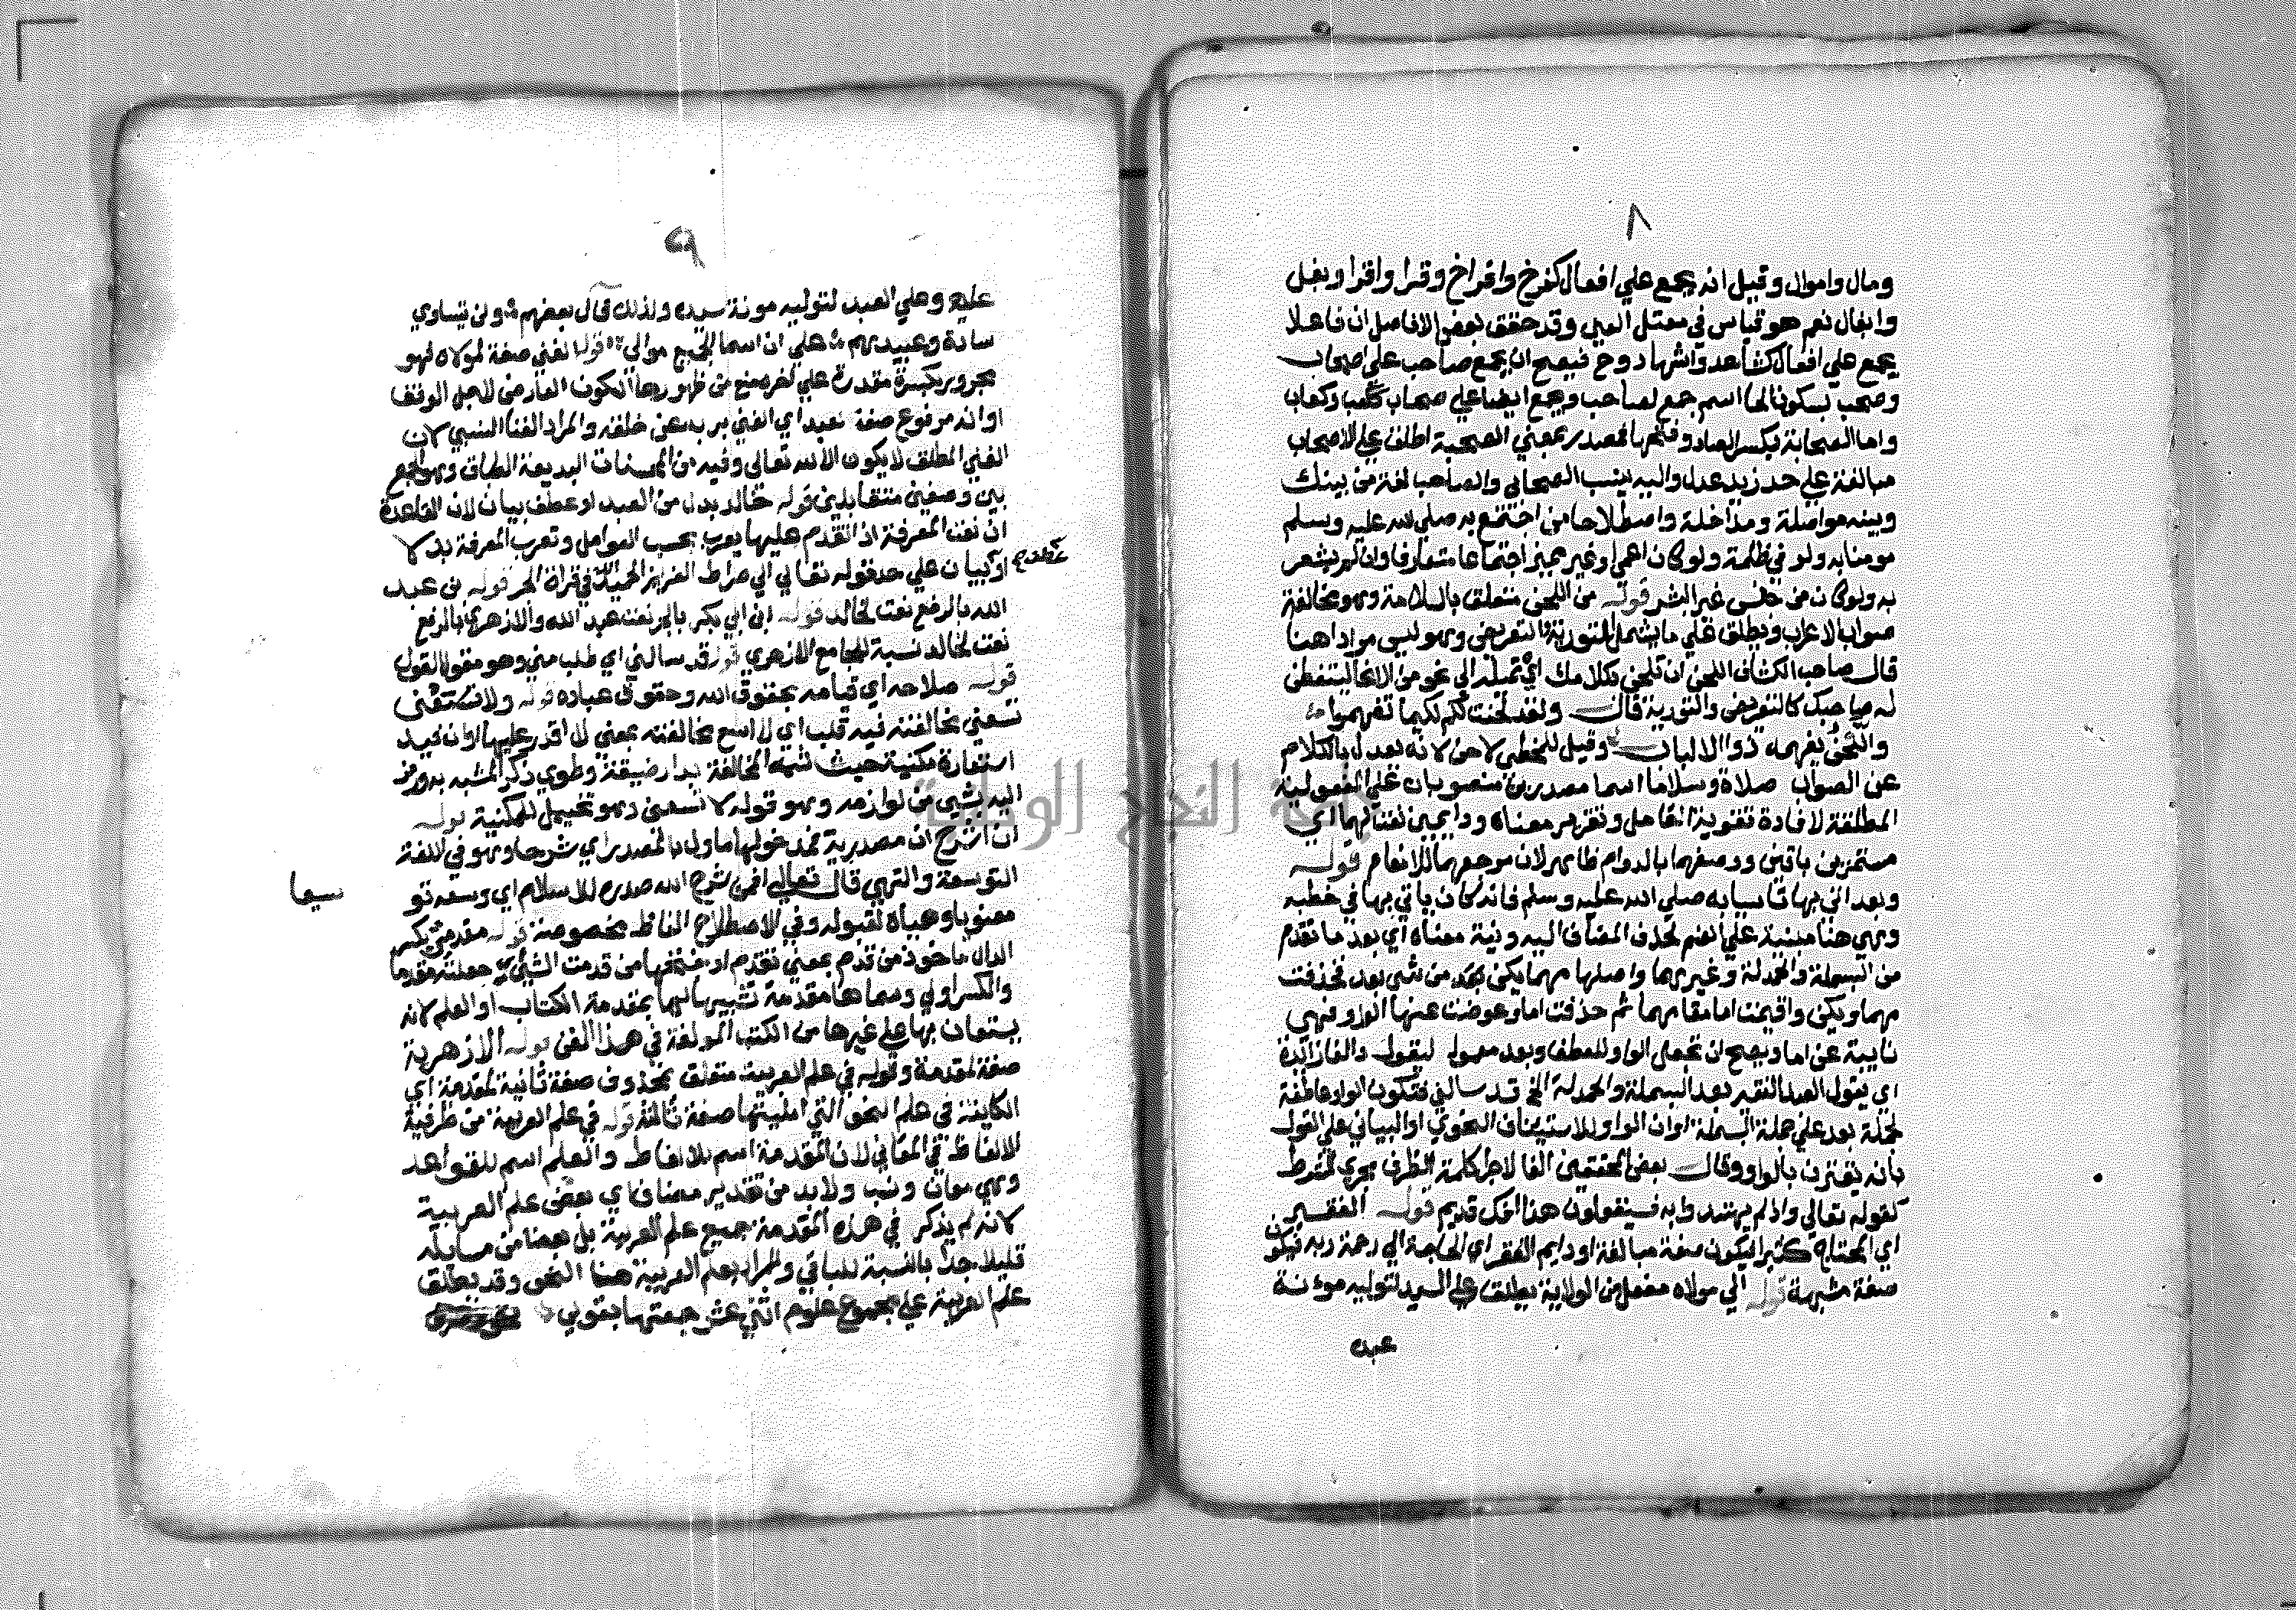 ٨
ومال واموال وقيل انه يجمع علي افعال كفرخ وافراخ وقرا واقرا وبغل
وابغال نعم هو قياس في معتل العين وقد حقق بعض الافاضل ان فاعلا
يجمع علي افعال كشاهد واشهاد وح فيصح ان يجمع صاحب علي اصحاب
وصحب بسكون الحا اسم جمع لصاحب ويجمع ايضا علي صحاب ككعب وكعاب
واما الصحابة بكسر الصاد وفتحها فمصدر بمعني الصحبة اطلق علي الاصحاب
مبالغة علي حد زيد عدل واليه ينسب الصحابي والصاحب لغة من بينك
وبينه مواصلة ومداخلة واصطلاحا من اجتمع به صلي الله عليه وسلم
مومنا به ولو في ظلمة ولو كان اعمي او غير مميز اجتماعا متعارفا وان لم يشعر
به ولو كان من جنس غير البشر قوله من اللحن متعلق بالسلامة وهو مخالفة
صواب الاعراب ويطلق علي ما يشمل التورية والتعريض وهو ليس مرادا هنا
قال صاحب الكشاف اللحن ان تلحن بكلامك اي تميله الي نحو من الانحا ليتفطن
له صاحبك كالتعريض والتورية قال ولقد لحنت لكم لكيما تفهموا
واللحن يفهمه ذوا الالباب وقيل للمخطي لاحن لانه يعدل بالكلام
عن الصواب صلاة وسلاما اسما مصدرين منصوبان علي المفعولية
المطلقة لافادة تقوية العامل وتقرير معناه ودايمين نعتا لهما اي
مستمرين باقين ووصفهما بالدوام ظاهر لان مرجعهما للانعام قوله
وبعد اتي بها تاسيا به صلي الله عليه وسلم فانه كان ياتي بها في خطبه
وهي هنا مبنية علي الضم لحذف المضاف اليه ونية معناه اي بعد ما تقدم
من البسملة والحمدلة وغيرهما واصلها مهما يكن بعد من شي بعد فحذفت
مهما ويكن واقيمت اما مقامهما ثم حذفت اما وعوضت عنها الواو فهي
نايبة عن اما ويصح ان تجعل الواو للعطف وبعد معمول ليقول والفا زائدة
اي يقول العبد الفقير بعد البسملة والحمدلة الخ قد سالني فتكون الواو عاطفة
لجملة بعد علي جملة البسملة او ان الواو للاستيناف النحوي او البياني علي القول
بانه يقترن بالواو وقال بعض المحققين الفا لاجرا كلمة الظرف مجري الشرط
كقوله تعالي واذ لم يهتدوا به فسيقولون هذا افك قديم قوله الفقير
اي المحتاج كثيرا فيكون صفة مبالغة او دايم الفقر اي الحاجة الي رحمة ربه فيكون
صفة مشبهة قوله الي مولاه مفعل من الولاية يطلق علي السيد لتوليه مونة
عبده
٩
عليه وعلي العبد لتوليه مونة سيده ولذلك قال بعضهم ولن تيساوي
سادة وعبيدهم علي ان اسما الجميع موالي قوله الغني صفة لمولاه فهو
مجرور بكسرة مقدرة علي اخره منع من ظهورها السكون العارض لاجل الوقف
او انه مرفوع صفة لعبد اي الغني بربه عن خلقه والمراد الغنا النسبي لان
الغني المطلق لا يكون الا لله تعالى وفيه من المحسنات البديعة الطباق وهو الجمع
بين وصفين متقابلين قوله خالد بدل من العبد او عطف بيان لان القاعدة
ان نعت المعرفة اذا تقدم عليها يعرب بحسب العوامل وتعرب المعرفة بدلا
عطف
او بيان علي حد قوله تعالي الي صراط العزيز الحميد الله في قراة الجر قوله بن عبد
الله بالرفع نعت لخالد قوله ابن ابي بكر بالجر نعت عبد الله والازهري بالرفع
نعت لخالد نسبة للجامع الازهري قوله قد سالني اي طلب مني وهو مقول القول
قوله صلاحه اي قيامه بحقوق الله وحقوق عباده قوله ولا تسعني
تسعني مخالفته فيه قلب اي لا اسع مخالفته بمعني لا اقدر عليها او ان فيه
استعارة مكنية حيث شبه المخالفة بدار ضيقة وطوي ذكر المشبه به ورمز
اليه بشي من لوازمه وهو قوله لا تسعني وهو تخييل للمكنية قوله
ان اشرح ان مصدرية فمدخولها ماول بالمصدر اي شرحا وهو في اللغة
التوسعة والتهي قال تعالي افمن شرح الله صدره للاسلام اي وسعه تو
سيعا
معنويا وهياه لقبوله وفي الاصطلاح الفاظ مخصوصة قوله مقدمتي بكسر
الدال ماخوذ من قدم بمعني تقدم او بفتحها من قدمت الشي جعلته مقدما
والكسر اولي وسماها مقدمة تشبيها لها بمقدمة الكتاب او العلم لانه
يستعان بها علي غيرها من الكتب المولفة في هذا الفن قوله الازهرية
صفة لمقدمة وقوله في علم العربية متعلق بمحذوف صفة ثانية لمقدمة اي
الكاينة في علم النحو التي املبيتها صفة ثالثة قوله في علم العربية من ظرفية
الالفاظ في المعاني لان المقدمة اسم للالفاظ والعلم اسم للقواعد
وهي معان ونسب ولابد من تقدير مضاف اي بعض علم العربية
لانه لم يذكر في هذه المقدمة جميع علم العربية بل بعضا من مسايله
قليلا جدا بالنسبة للباقي والمراد بعلم العربية هنا النحو وقد يطلق
علم العربية علي مجموع علوم اثني عشر جمعتها بقولي
جامعة النجاح الوطنية